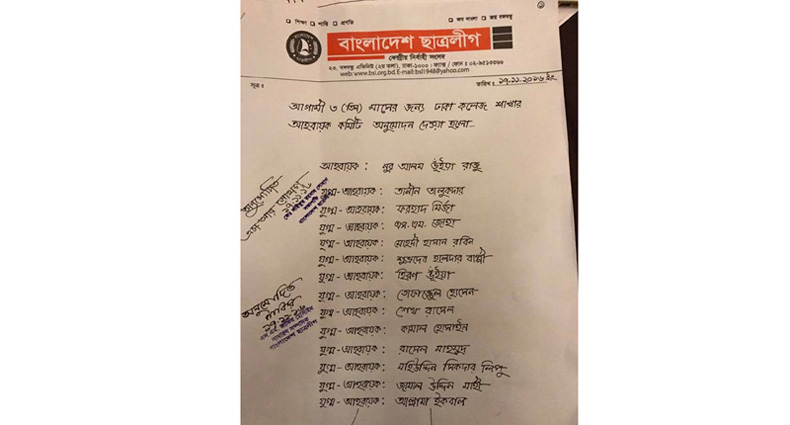 শিক্ষা শান্তি প্রগতি
জয় বাংলা জয় বঙ্গবন্ধু
বাংলাদেশ ছাত্রলীগ
কেন্দ্রীয় নির্বাহী সংসদ
২৩, বঙ্গবন্ধু এভিনিউ (২য় তলা), ঢাকা-১০০০। ফ্যাক্স / ফোন : ০২-৯৫১৩৩৬৬
web:www.bsl.org.bd, E-mail:bsl1948@yahoo.com
সূত্র :
তারিখ : ১৭.১১.২০১৬ইং
আগামী ৩ (তিন) মাসের জন্য ঢাকা কলেজ শাখার
আহবায়ক কমিটি অনুমোদন দেওয়া হলো..
আহবায়ক : নুর আলম ভূঁইয়া রাজু
যুগ্ম-আহবায়ক : তানীন তালুকদার
যুগ্ম-আহবায়ক : ফরহাদ মির্জা
যুগ্ম-আহবায়ক : এস.এম. জোহা
যুগ্ম-আহবায়ক : মেহেদী হাসান রবিন
যুগ্ম-আহবায়ক : শুভ্রদেব হালদার বাপ্পী
যুগ্ম-আহবায়ক : হিরণ ভূঁইয়া
যুগ্ম-আহবায়ক : তোফাজ্জেল হোসেন
যুগ্ম-আহবায়ক : শেখ রাসেল
যুগ্ম-আহবায়ক : কামাল হোসাইন
যুগ্ম-আহবায়ক : রাসেল মাহমুদ
যুগ্ম-আহবায়ক : মহিউদ্দিন সিকদার লিপু
যুগ্ম-আহবায়ক : জামাল উদ্দিন মাহী
যুগ্ম-আহবায়ক : আল্লামা ইকবাল
অনুমোদিত
১৭.১১.১৬
বাংলাদেশ ছাত্রলীগ